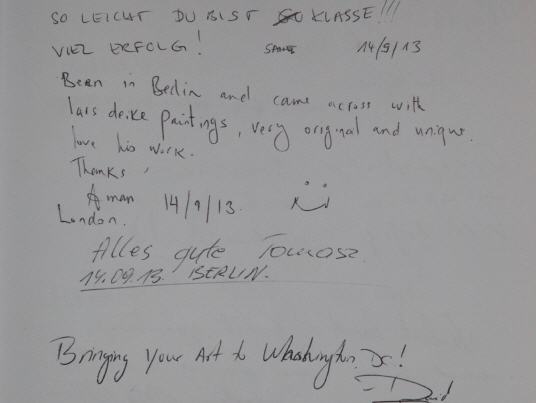 SO LEICHT DU BIST SO KLASSE!!!
VIEL ERFOLG! 14/9/13
Been in Berlin and came across with
lars deike paintings, very original and unique.
love his work.
Thanks,
Aman 14/9/13.
London.
Alles gute Tomasz.
14.09.13. BERLIN.
Bringing Your Art to Washington, DC!
-David